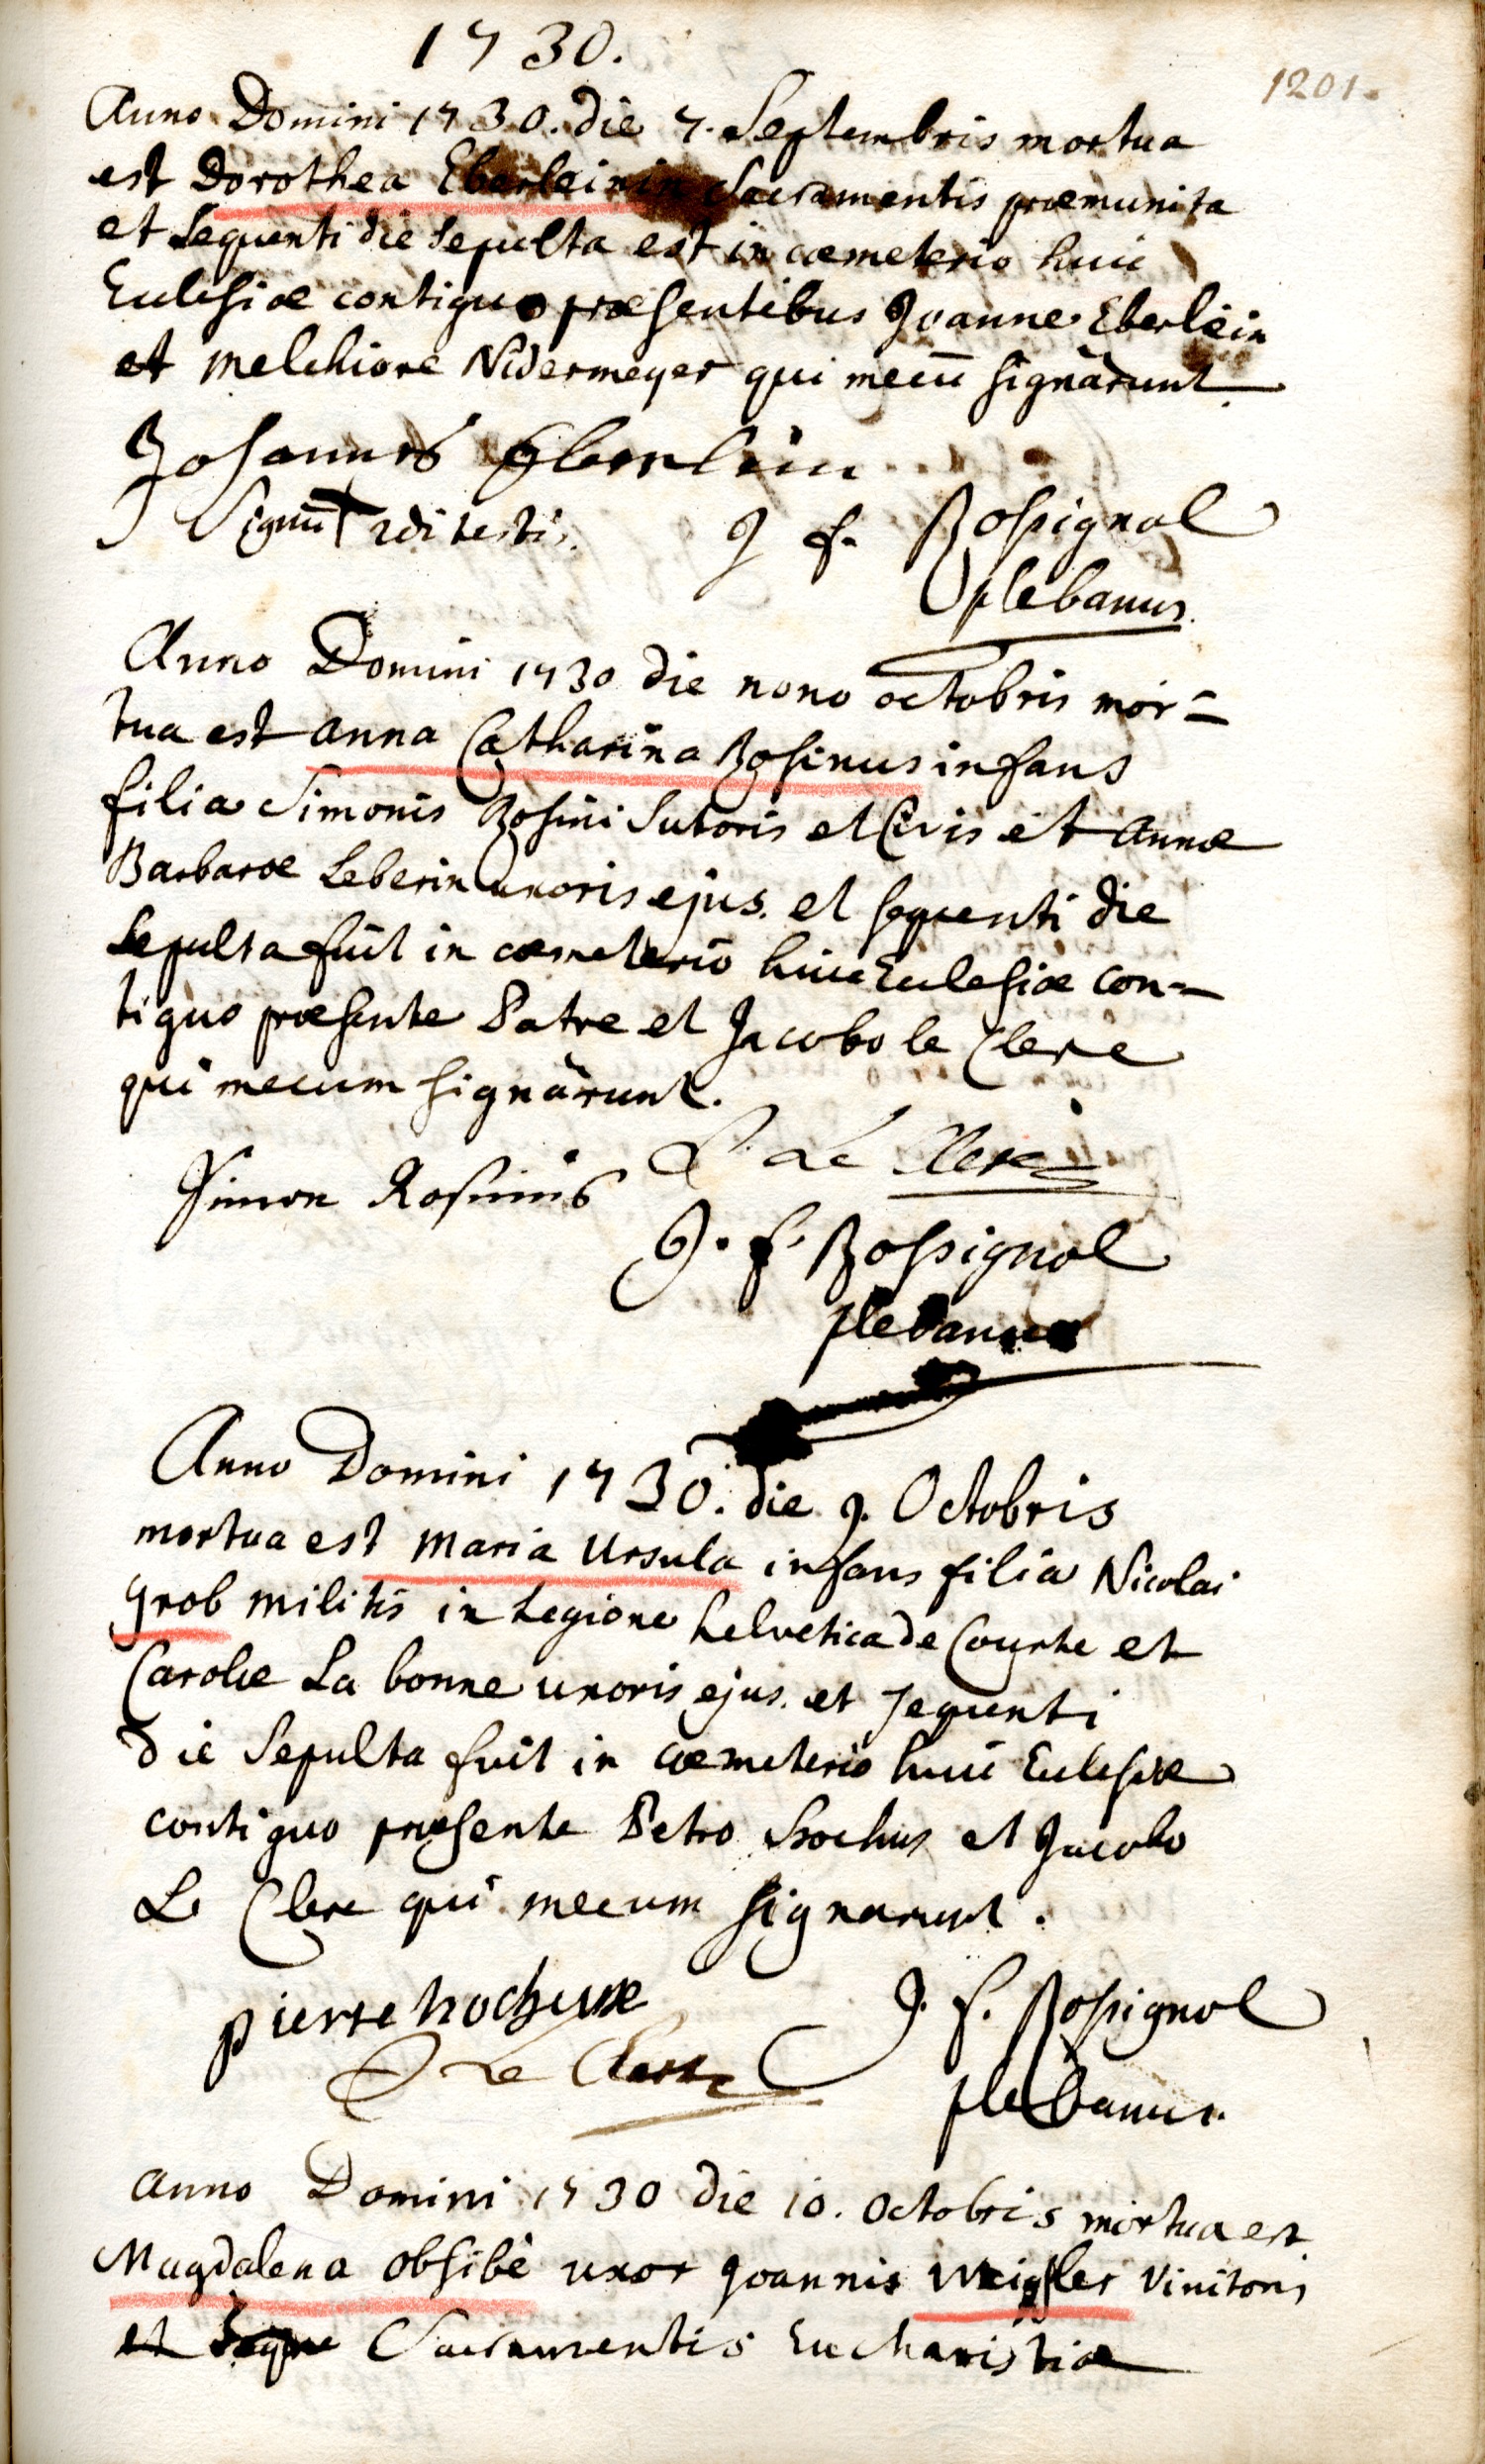 1730.
1201.
Anno Domini 1730. die 7. Septembris mortua
est Dorothea Eberleinin Sacramentis præmunita
et sequenti die sepulta est in cæmeterio huic
Ecclesiæ contiguo præsentibus Joanne Eberlein
et Melchiore Nidermeyer qui mecū signârunt.
Johannes Eberlein
Signū 2di testis.
J f. Rossignol
plebanus.
Anno Domini 1730 die nono octobris mor=
tua est anna Catharina Rosinus infans
filia Simonis Rosini Sutoris et Civis et annæ
Barbaræ Leberin uxoris ejus. et sequenti die
Sepulta fuit in cæmeterio huic Ecclesiæ con=
tiguo præsente Patre et Jacobo le Clere
qui mecum signârunt.
Simon Rosinus
Le Clere
J. f. Rossignol
plebanus
Anno Domini 1730. die 9. Octobris
mortua est Maria Ursula infans filia Nicolai
Grob militis in Legione helvetica de Courte et
Carolæ La bonne uxoris ejus. et sequenti
die Sepulta fuit in cæmeterio huic Ecclesiæ
contiguo præsente Petro et Jacobo
Le Clere qui mecum signarunt.
pierre
J. f. Rossignol
Le Clere
plebanus.
Anno Domini 1730 die 10. Octobris mortua est
Magdalena obsibè uxor Joannis Vinitoris
et Sacramentis Eucharistiæ